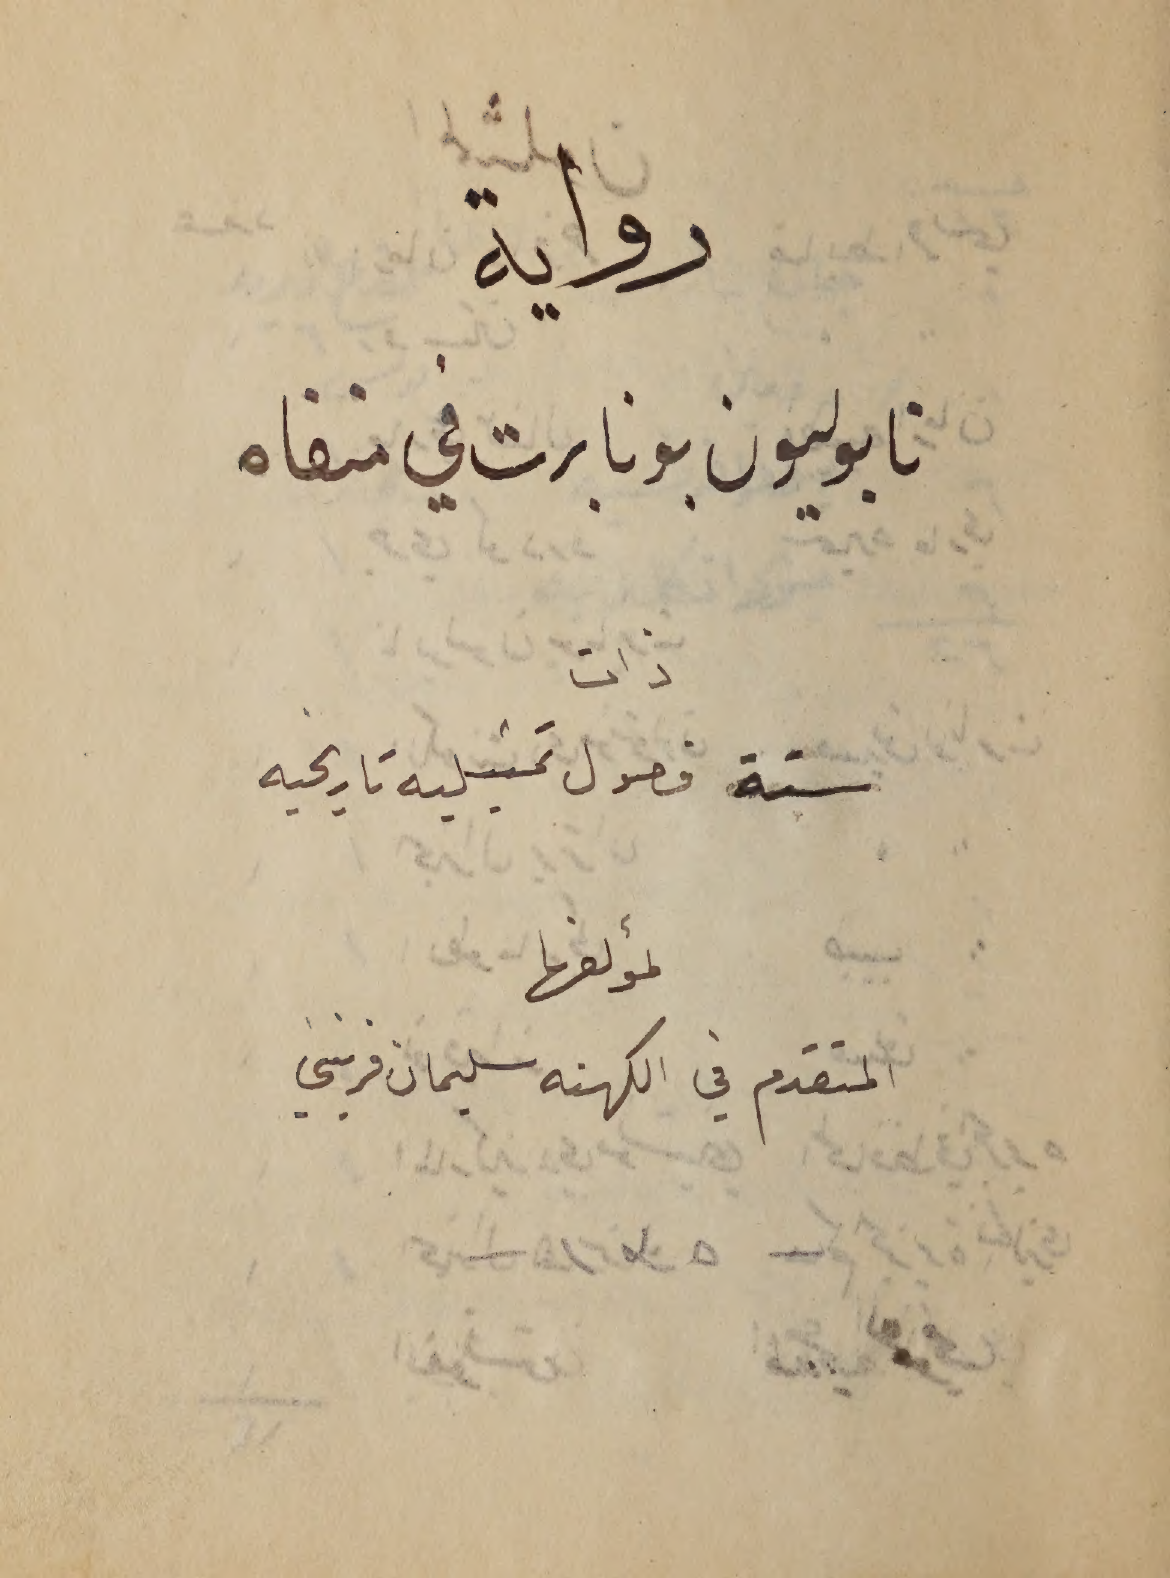 رواية
نابوليون بونابرت في منفاه
ذات
ستة فصول تمثيليه تاريخيه
لمؤلفها
المتقدم في الكهنه سليمان فرينيني